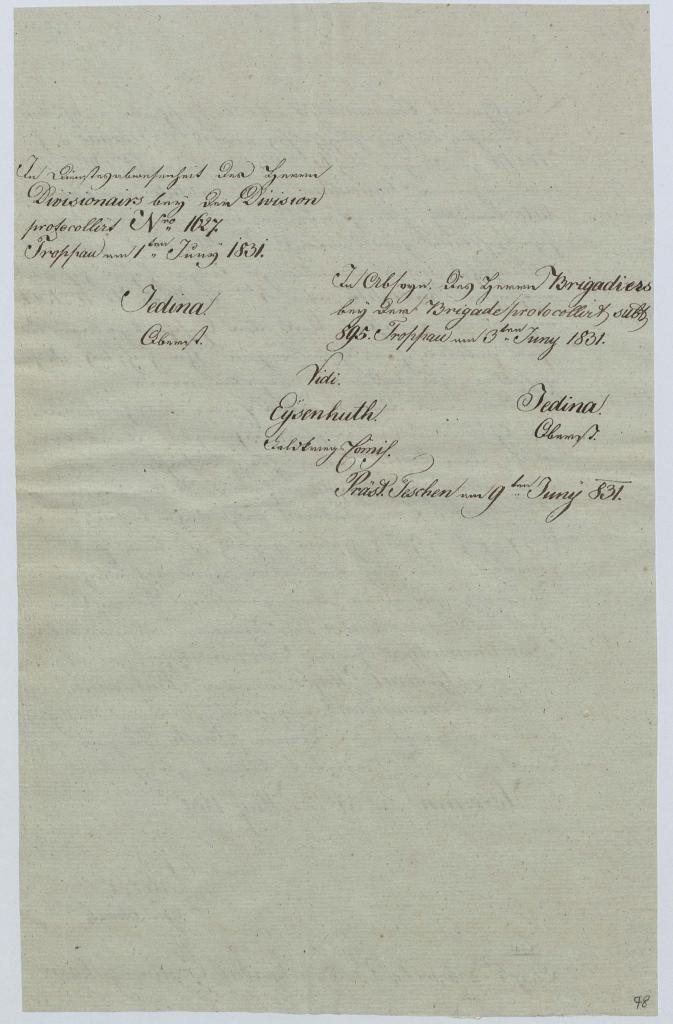 In Dienstesabwesenheit des Herrn
Divisionairs bey der Division
protocollirt Nro 1627.
Troppau am 1ten Juny 1831.
Jedina
Oberst.
In Abwgn. des Herrn Brigadiers
bey der Brigade protocollirt, sub
895. Troppau am 3ten Juny 1831.
Vidi.
Eysenhuth.
Feldkriegs Comis.
Jedina
Oberst.
Präst. Teschen am 9ten Juny 831.
48